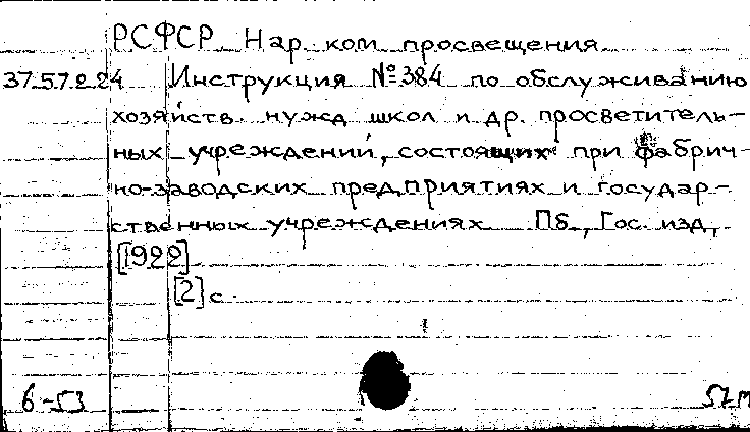 РСФСР Нар. ком. просвещения
37.57.2.24 Инструкция № 384 по обслуживанию
хозяйств. нужд школ и др. просветитель-
ных учреждений, состоящих при фабрич-
но-заводских предприятиях и государ-
ственных учреждениях Пб., Гос. изд.,
[1922]
[2] с.
6-53 57М